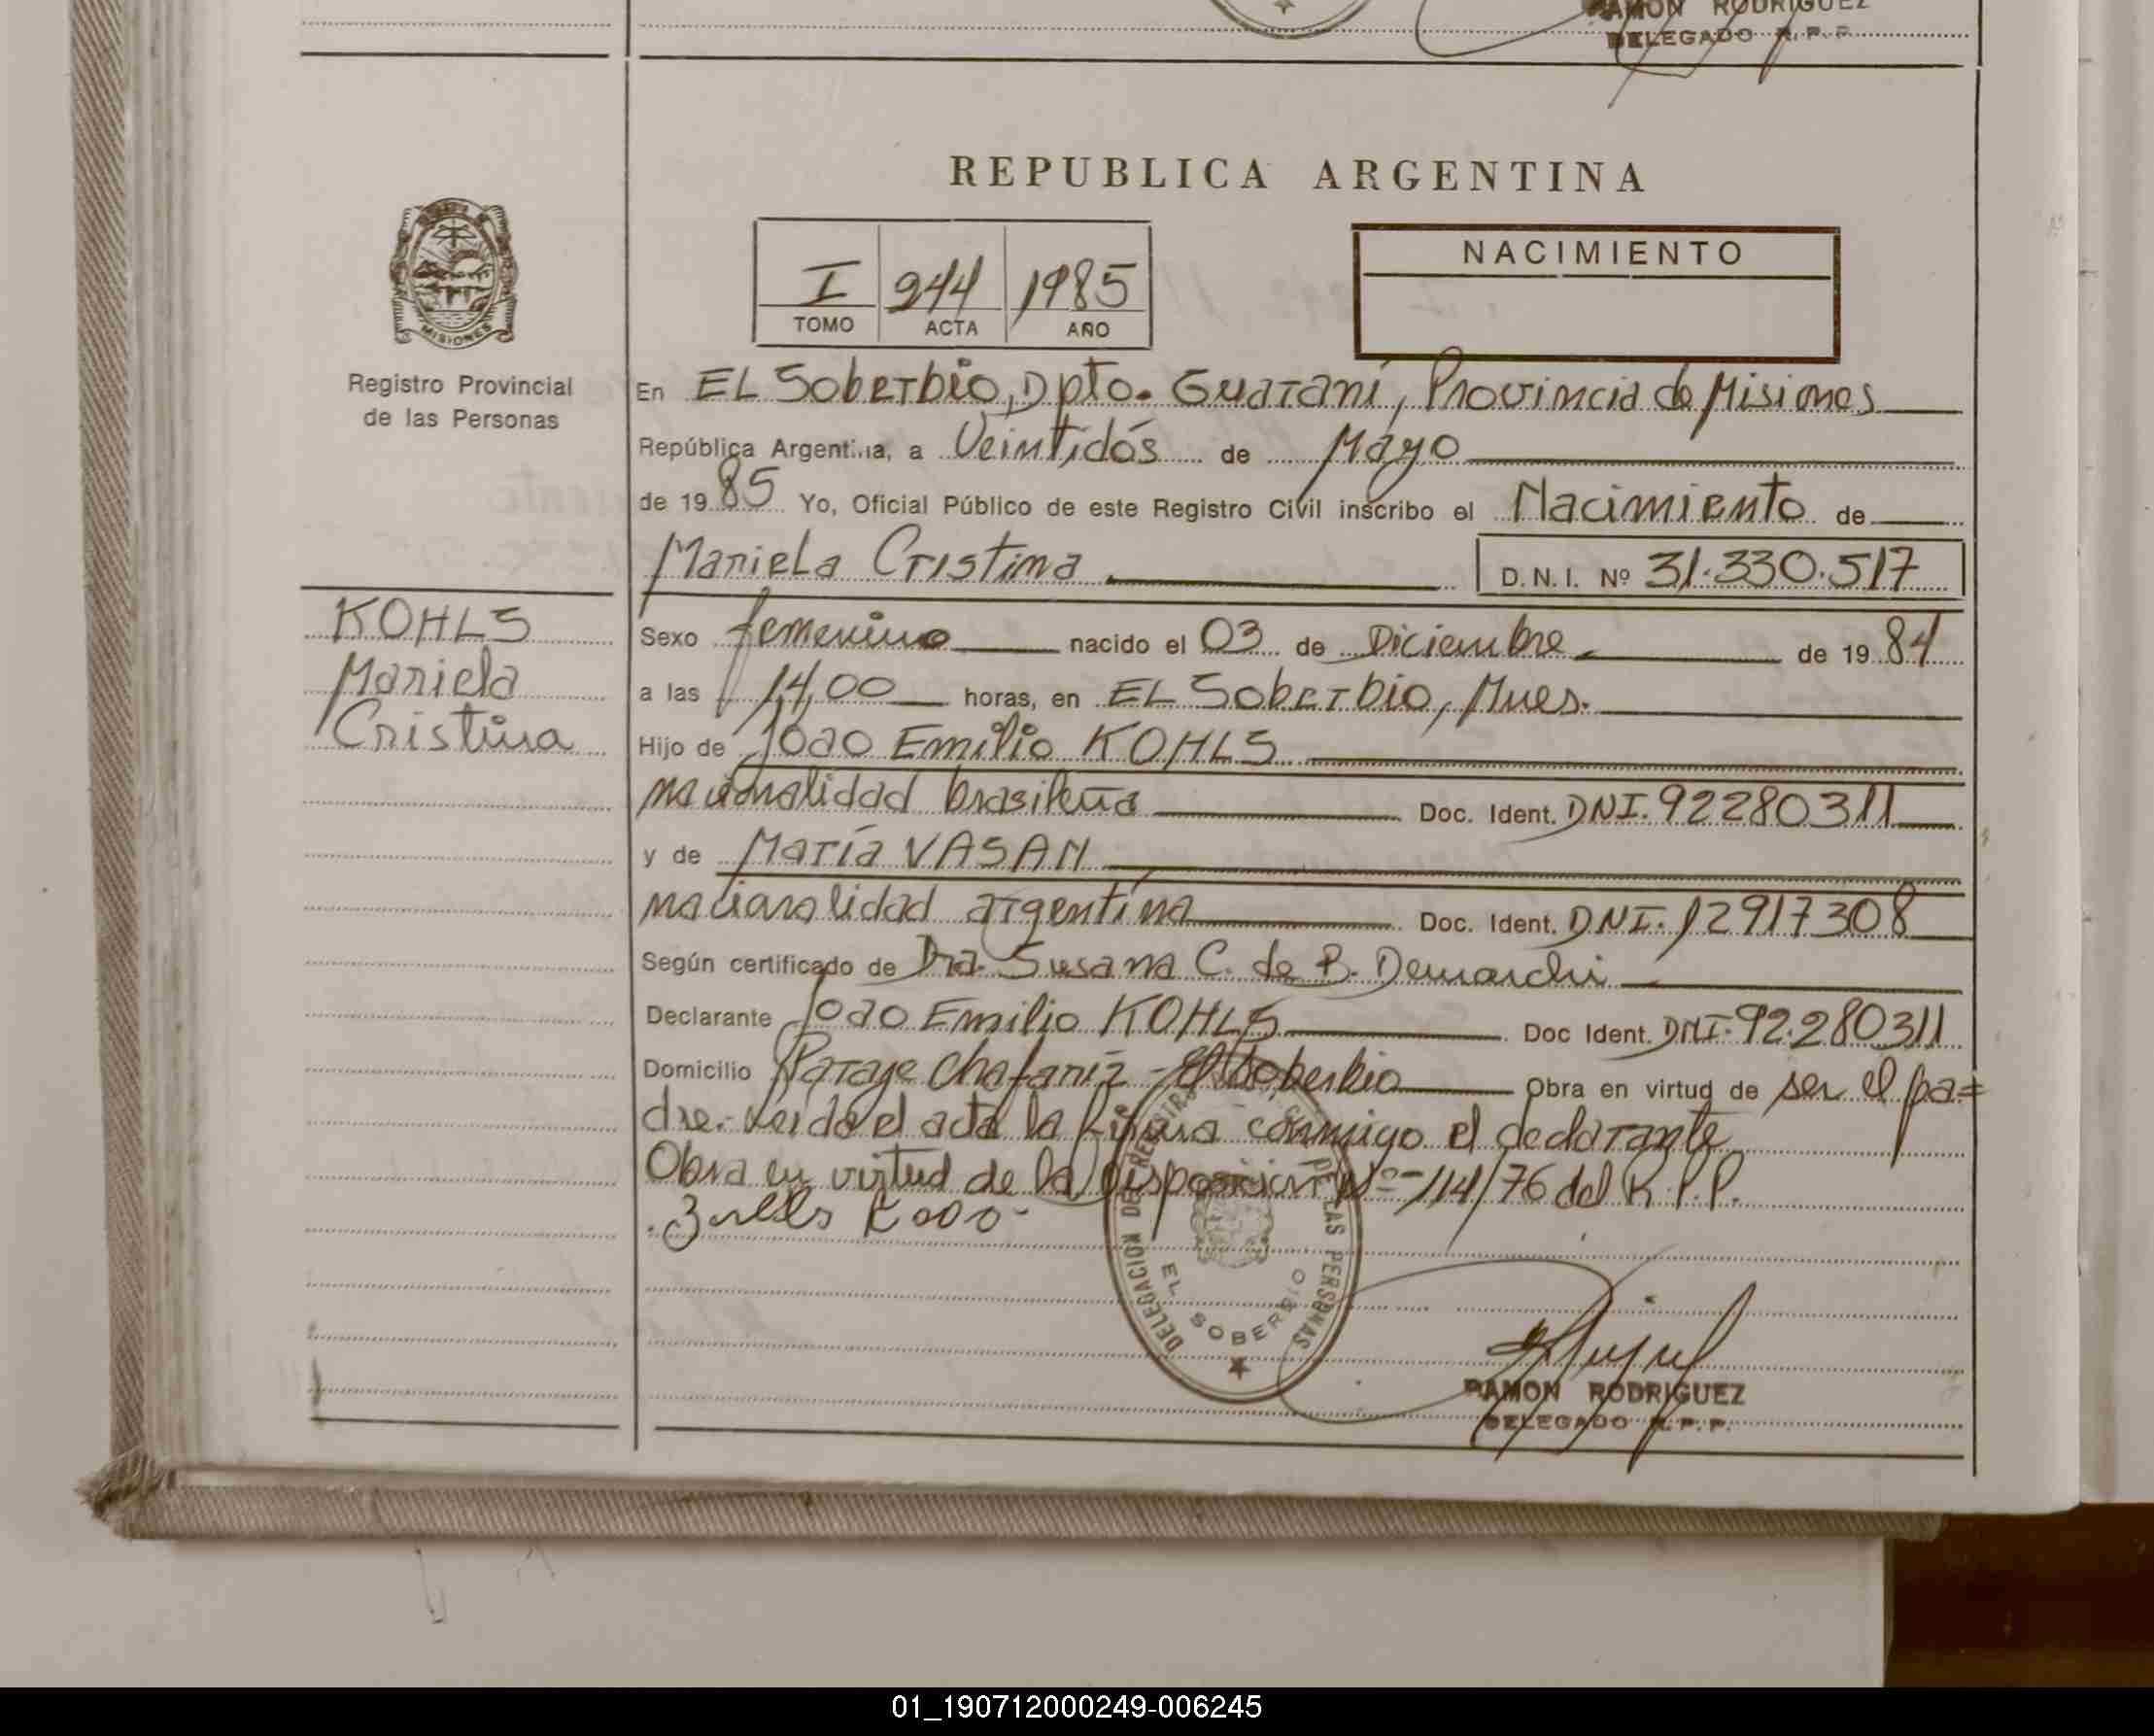 RAMON RODRIGUEZ
DELEGADO R.P.P.
REPUBLICA ARGENTINA
I 244 1985
TOMO ACTA AÑO
NACIMIENTO
MISIONES
Registro Provincial
de las Personas
En EL Soberbio, Dpto. Guaraní, Provincia de Misiones
República Argentina, a Veintidós de Mayo
de 1985 Yo, Oficial Público de este Registro Civil inscribo el Nacimiento de
Mariela Cristina D.N.I. Nº 31.330.517
KOHLS
Mariela
Cristina
Sexo femenino nacido el 03 de Diciembre de 1984
a las 14,00 horas, en EL Soberbio, Mnes.
Hijo de Joao Emilio KOHLS
nacionalidad brasileña Doc. Ident. DNI. 92280311
y de María VASAN
nacionalidad argentina Doc. Ident. DNI. 12917308
Según certificado de Dra. Susana C. de B. Demarchi
Declarante Joao Emilio KOHLS Doc Ident. DNI. 92.280311
Domicilio Paraje Chafariz - El Soberbio Obra en virtud de ser el pa=
dre. Leída el acta la firma conmigo el declarante
Obra en virtud de la Disposición Nº 114/76 del R.P.P.
DELEGACION DEL REGISTRO DE LAS PERSONAS
EL SOBERBIO
RAMON RODRIGUEZ
DELEGADO R.P.P.
01_190712000249-006245